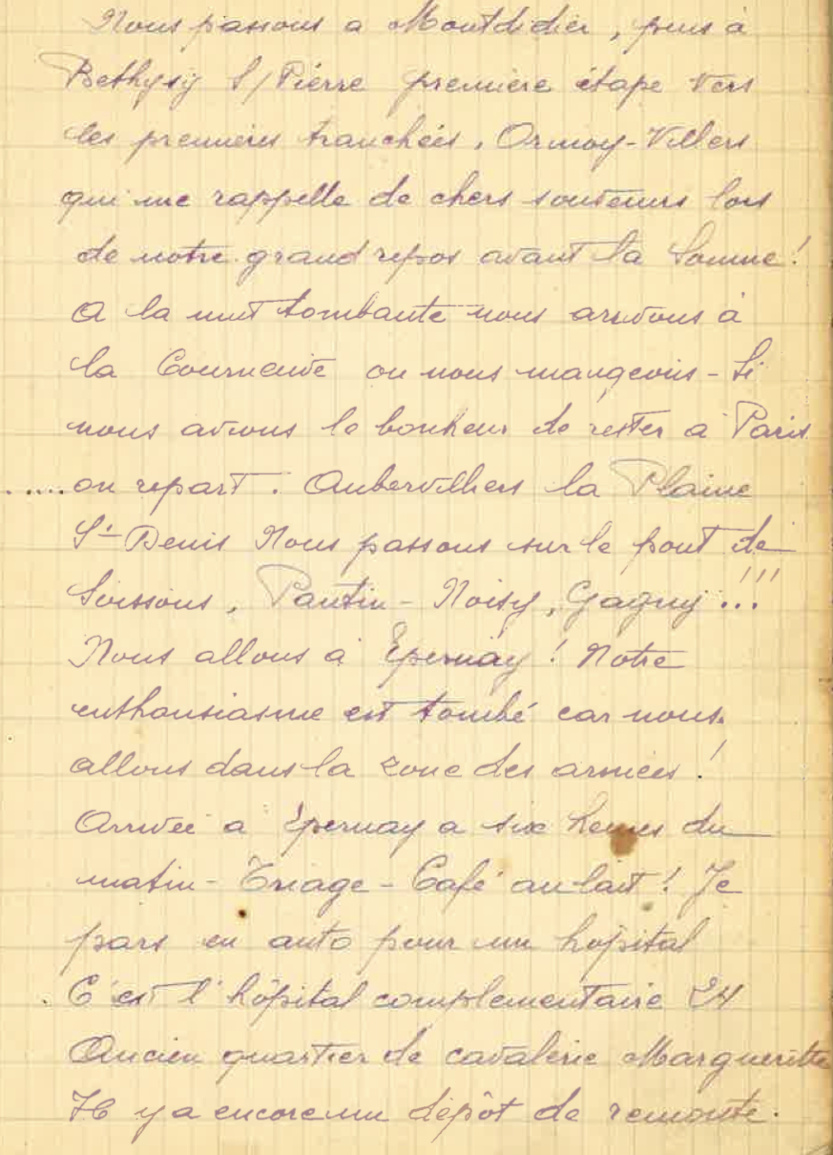 Nous passons a Montdidier, puis à
Bethysy S/Pierre première étape vers
les premières tranchées, Ormoy-Villers
qui me rappelle de chers souvenirs lors
de notre grand repos avant la Somme!
A la nuit tombante nous arrivons à
la Courneuve ou nous mangeons - Si
nous avions le bonheur de rester a Paris
.....on repart. Aubervilliers la Plaine
St Denis Nous passons sur le pont de
Soissons, Pantin - Noisy, Gagny!!!
Nous allons à Épernay! Notre
enthousiasme est tombé car nous
allons dans la zone des armées!
Arrivée a Épernay a six heures du
matin - Triage - Café au lait! Je
pars en auto pour un hopital
C'est l'hôpital complementaire 24
Ancien quartier de cavalerie Margueritte
Il y a encore un dépôt de remonte.